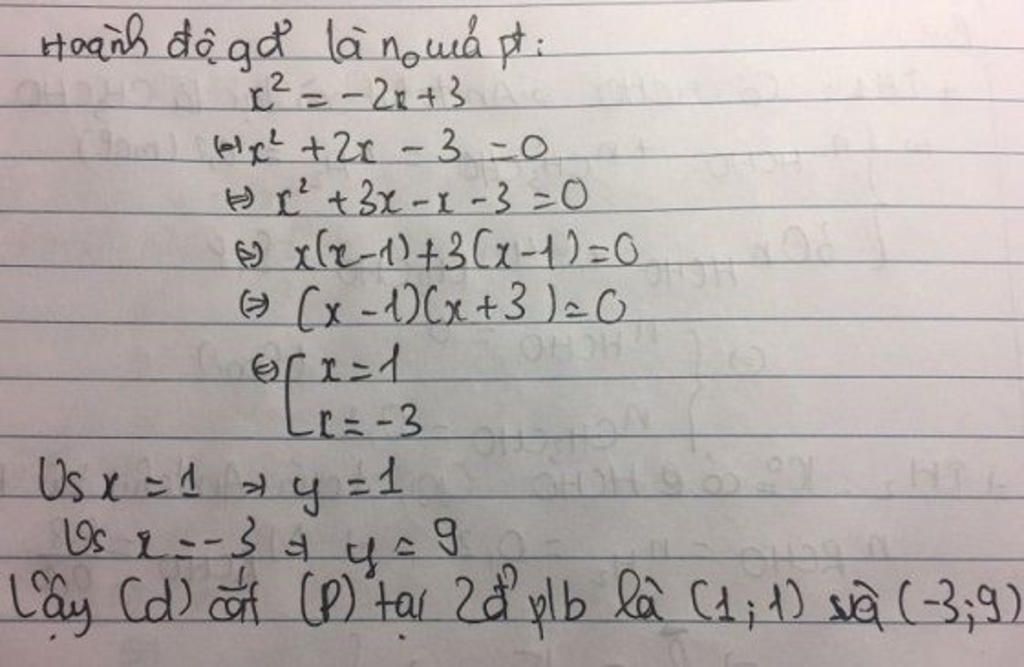 Hoành độ gđ là n₀ của pt:
x² = -2x+3
⇔ x² + 2x - 3 = 0
⇔ x² + 3x - x - 3 = 0
⇔ x(x-1)+3(x-1)=0
⇔ (x-1)(x+3)=0
⇔ [ x = 1
x = -3
Vs x = 1 ⇒ y = 1
Vs x = -3 ⇒ y = 9
Vậy (d) cắt (P) tại 2đ' p/b là (1;1) và (-3;9)